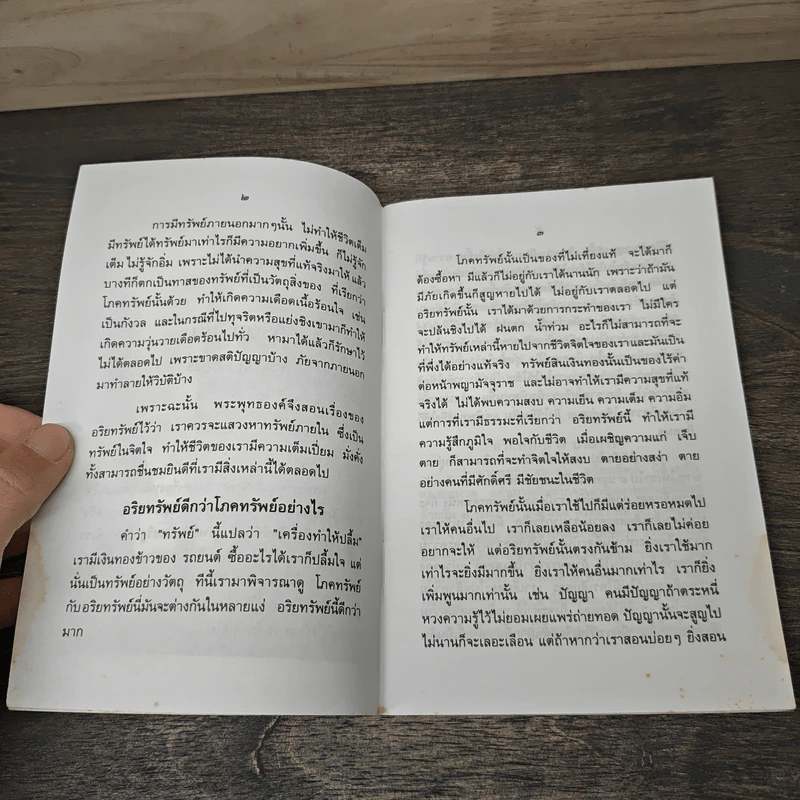 ๒
การมีทรัพย์ภายนอกมากๆนั้น ไม่ทำให้ชีวิตเต็ม
มีทรัพย์ได้ทรัพย์มาเท่าไรก็มีความอยากเพิ่มขึ้น ก็ไม่รู้จัก
เต็ม ไม่รู้จักอิ่ม เพราะไม่ได้นำความสุขที่แท้จริงมาให้ แล้ว
บางทีก็ตกเป็นทาสของทรัพย์ที่เป็นวัตถุสิ่งของ ที่เรียกว่า
โภคทรัพย์นั้นด้วย ทำให้เกิดความเดือดเนื้อร้อนใจ เช่น
เป็นกังวล และในกรณีที่ไปทุจริตหรือแย่งชิงเขามาก็ทำให้
เกิดความวุ่นวายเดือดร้อนไปทั่ว หามาได้แล้วก็รักษาไว้
ไม่ได้ตลอดไป เพราะขาดสติปัญญาบ้าง ภัยจากภายนอก
มาทำลายให้วิบัติบ้าง
เพราะฉะนั้น พระพุทธองค์จึงสอนเรื่องของ
อริยทรัพย์ไว้ว่า เราควรจะแสวงหาทรัพย์ภายใน ซึ่งเป็น
ทรัพย์ในจิตใจ ทำให้ชีวิตของเรามีความเต็มเปี่ยม มั่งคั่ง
ทั้งสามารถชื่นชมยินดีที่เรามีสิ่งเหล่านี้ได้ตลอดไป
อริยทรัพย์ดีกว่าโภคทรัพย์อย่างไร
คำว่า "ทรัพย์" นี้แปลว่า "เครื่องทำให้ปลื้ม"
เรามีเงินทองข้าวของ รถยนต์ ซื้ออะไรได้เราก็ปลื้มใจ แต่
นั่นเป็นทรัพย์อย่างวัตถุ ทีนี้เรามาพิจารณาดู โภคทรัพย์
กับอริยทรัพย์นี่มันจะต่างกันในหลายแง่ อริยทรัพย์นี้ดีกว่า
มาก
๓
โภคทรัพย์นั้นเป็นของที่ไม่เที่ยงแท้ จะได้มาก็
ต้องซื้อหา มีแล้วก็ไม่อยู่กับเราได้นานนัก เพราะว่าถ้ามัน
มีภัยเกิดขึ้นก็สูญหายไปได้ ไม่อยู่กับเราตลอดไป แต่
อริยทรัพย์นั้น เราได้มาด้วยการกระทำของเรา ไม่มีใคร
จะปล้นชิงไปได้ ฝนตก น้ำท่วม อะไรก็ไม่สามารถที่จะ
ทำให้ทรัพย์เหล่านี้หายไปจากชีวิตจิตใจของเราและมันเป็น
ที่พึ่งได้อย่างแท้จริง ทรัพย์สินเงินทองนั้นเป็นของไร้ค่า
ต่อหน้าพญามัจจุราช และไม่อาจทำให้เรามีความสุขที่แท้
จริงได้ ไม่ได้พบความสงบ ความเย็น ความเต็ม ความอิ่ม
แต่การที่เรามีธรรมะที่เรียกว่า อริยทรัพย์นี้ ทำให้เรามี
ความรู้สึกภูมิใจ พอใจกับชีวิต เมื่อเผชิญความแก่ เจ็บ
ตาย ก็สามารถที่จะทำจิตใจให้สงบ ตายอย่างสง่า ตาย
อย่างคนที่มีศักดิ์ศรี มีชัยชนะในชีวิต
โภคทรัพย์นั้นเมื่อเราใช้ไปก็มีแต่ร่อยหรอหมดไป
เราให้คนอื่นไป เราก็เลยเหลือน้อยลง เราก็เลยไม่ค่อย
อยากจะให้ แต่อริยทรัพย์นั้นตรงกันข้าม ยิ่งเราใช้มาก
เท่าไรจะยิ่งมีมากขึ้น ยิ่งเราให้คนอื่นมากเท่าไร เราก็ยิ่ง
เพิ่มพูนมากเท่านั้น เช่น ปัญญา คนมีปัญญาถ้าตระหนี่
หวงความรู้ไว้ไม่ยอมเผยแพร่ถ่ายทอด ปัญญานั้นจะสูญไป
ไม่นานก็จะเลอะเลือน แต่ถ้าหากว่าเราสอนบ่อยๆ ยิ่งสอน